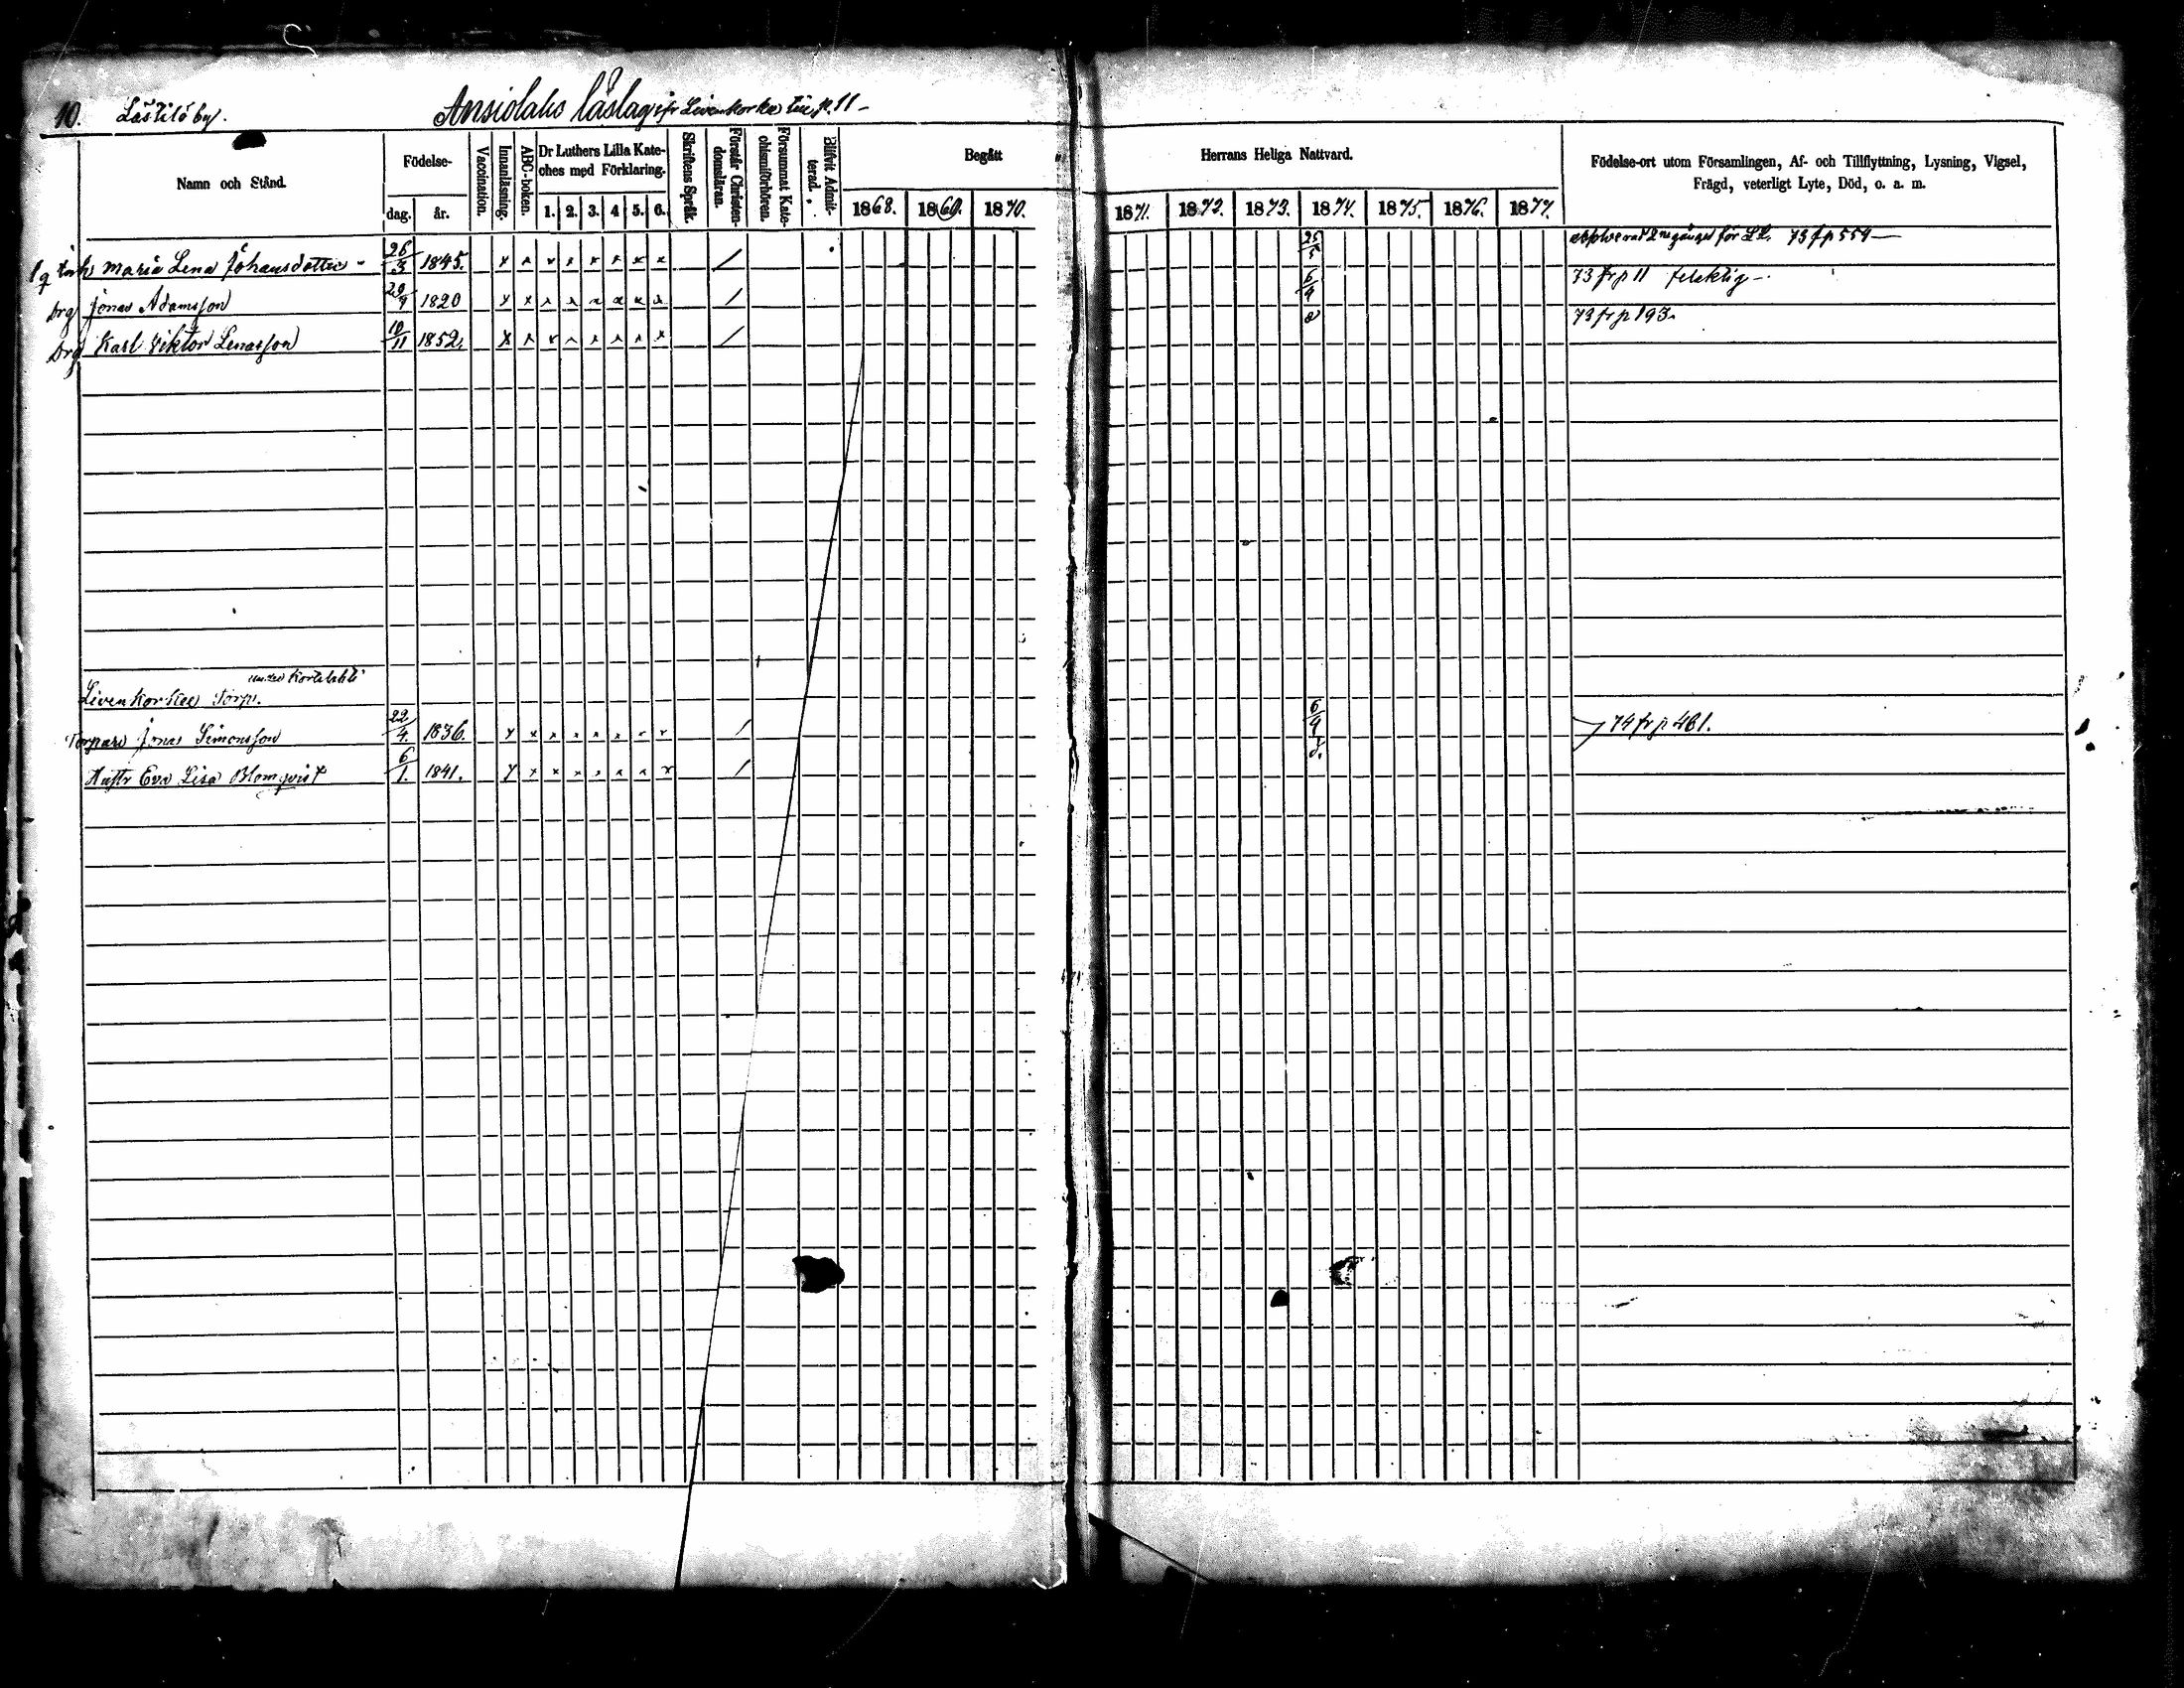 10. Lästilä by. Ansiolaks läslag
Namn och Stånd. Födelse- dag. år. Vaccination. Innanläsning. ABC-boken. Dr Luthers Lilla Kateches med Förklaring. 1. 2. 3. 4 5. 6. Skriftens Språk. Förstår Christendomsläran. Försummat Katechismiförhören. Blifvit Admitterad. Begått 1868. 1869. 1870. Herrans Heliga Nattvard. 1871. 1872. 1873. 1874. 1875. 1876. 1877. Födelse-ort utom Församlingen, Af- och Tillflyttning, Lysning, Vigsel, Frägd, veterligt Lyte, Död, o. a. m.
Maria Lena Johansdotter 26/3 1845. x x x x x x x x / 25/5 2ne gånger för LL. 73 fr p 554
Drg Jonas Adamsson 1820 x x x x x x x x / 6/4 73 fr p 11
Drg Karl Viktor Lenasson 10/11 1852. x x x x x x x x / 73 fr p 193.
Livenkorkee Torp.
Torpare Jonas Simonsson 22/4. 1836. x x x x x x x x / 6/4 74 fr p 461.
Hustr Eva Lisa Blomqvist 6/1. 1841. x x x x x x x x /